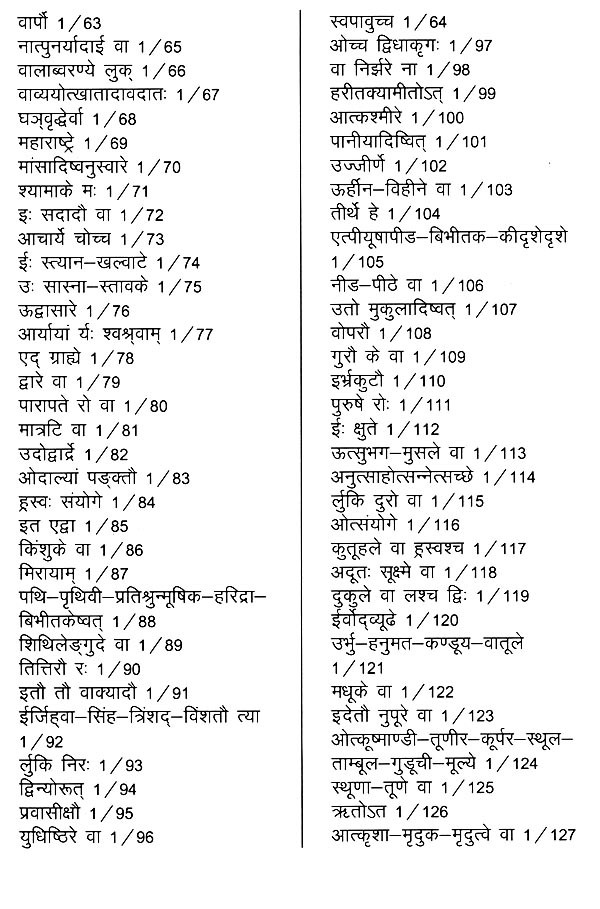 वार्पौ 1/63
नात्पुनर्यादाई वा 1/65
वालाब्वरण्ये लुक् 1/66
वाव्ययोत्खातादावदातः 1/67
घञ्वृद्धेर्वा 1/68
महाराष्ट्रे 1/69
मांसादिष्वनुस्वारे 1/70
श्यामाके मः 1/71
इः सदादौ वा 1/72
आचार्ये चोच्च 1/73
ईः स्त्यान–खल्वाटे 1/74
उः सास्ना–स्तावके 1/75
ऊद्वासारे 1/76
आर्यायां र्यः श्वश्र्वाम् 1/77
एद् ग्राह्ये 1/78
द्वारे वा 1/79
पारापते रो वा 1/80
मात्रटि वा 1/81
उदोद्वार्द्रे 1/82
ओदाल्यां पङ्क्तौ 1/83
ह्रस्वः संयोगे 1/84
इत एद्वा 1/85
किंशुके वा 1/86
मिरायाम् 1/87
पथि–पृथिवी–प्रतिश्रुन्मूषिक–हरिद्रा–
बिभीतकेष्वत् 1/88
शिथिलेङ्गुदे वा 1/89
तित्तिरौ रः 1/90
इतौ तौ वाक्यादौ 1/91
ईर्जिह्वा–सिंह–त्रिंशद्–विंशतौ त्या
1/92
र्लुकि निरः 1/93
द्विन्योरूत् 1/94
प्रवासीक्षौ 1/95
युधिष्ठिरे वा 1/96
स्वपावुच्च 1/64
ओच्च द्विधाकृगः 1/97
वा निर्झरे ना 1/98
हरीतक्यामीतोऽत् 1/99
आत्कश्मीरे 1/100
पानीयादिष्वित् 1/101
उज्जीर्णे 1/102
ऊर्हीन–विहीने वा 1/103
तीर्थे हे 1/104
एत्पीयूषापीड–बिभीतक–कीदृशेदृशे
1/105
नीड–पीठे वा 1/106
उतो मुकुलादिष्वत् 1/107
वोपरौ 1/108
गुरौ के वा 1/109
इर्भ्रकुटौ 1/110
पुरुषे रोः 1/111
ईः क्षुते 1/112
ऊत्सुभग–मुसले वा 1/113
अनुत्साहोत्सन्नेत्सच्छे 1/114
र्लुकि दुरो वा 1/115
ओत्संयोगे 1/116
कुतूहले वा ह्रस्वश्च 1/117
अदूतः सूक्ष्मे वा 1/118
दुकुले वा लश्च द्विः 1/119
ईर्वोद्व्यूढे 1/120
उर्भ्रु–हनुमत–कण्डूय–वातूले
1/121
मधूके वा 1/122
इदेतौ नुपूरे वा 1/123
ओत्कूष्माण्डी–तूणीर–कूर्पर–स्थूल–
ताम्बूल–गुडूची–मूल्ये 1/124
स्थूणा–तूणे वा 1/125
ऋतोऽत 1/126
आत्कृशा–मृदुक–मृदुत्वे वा 1/127